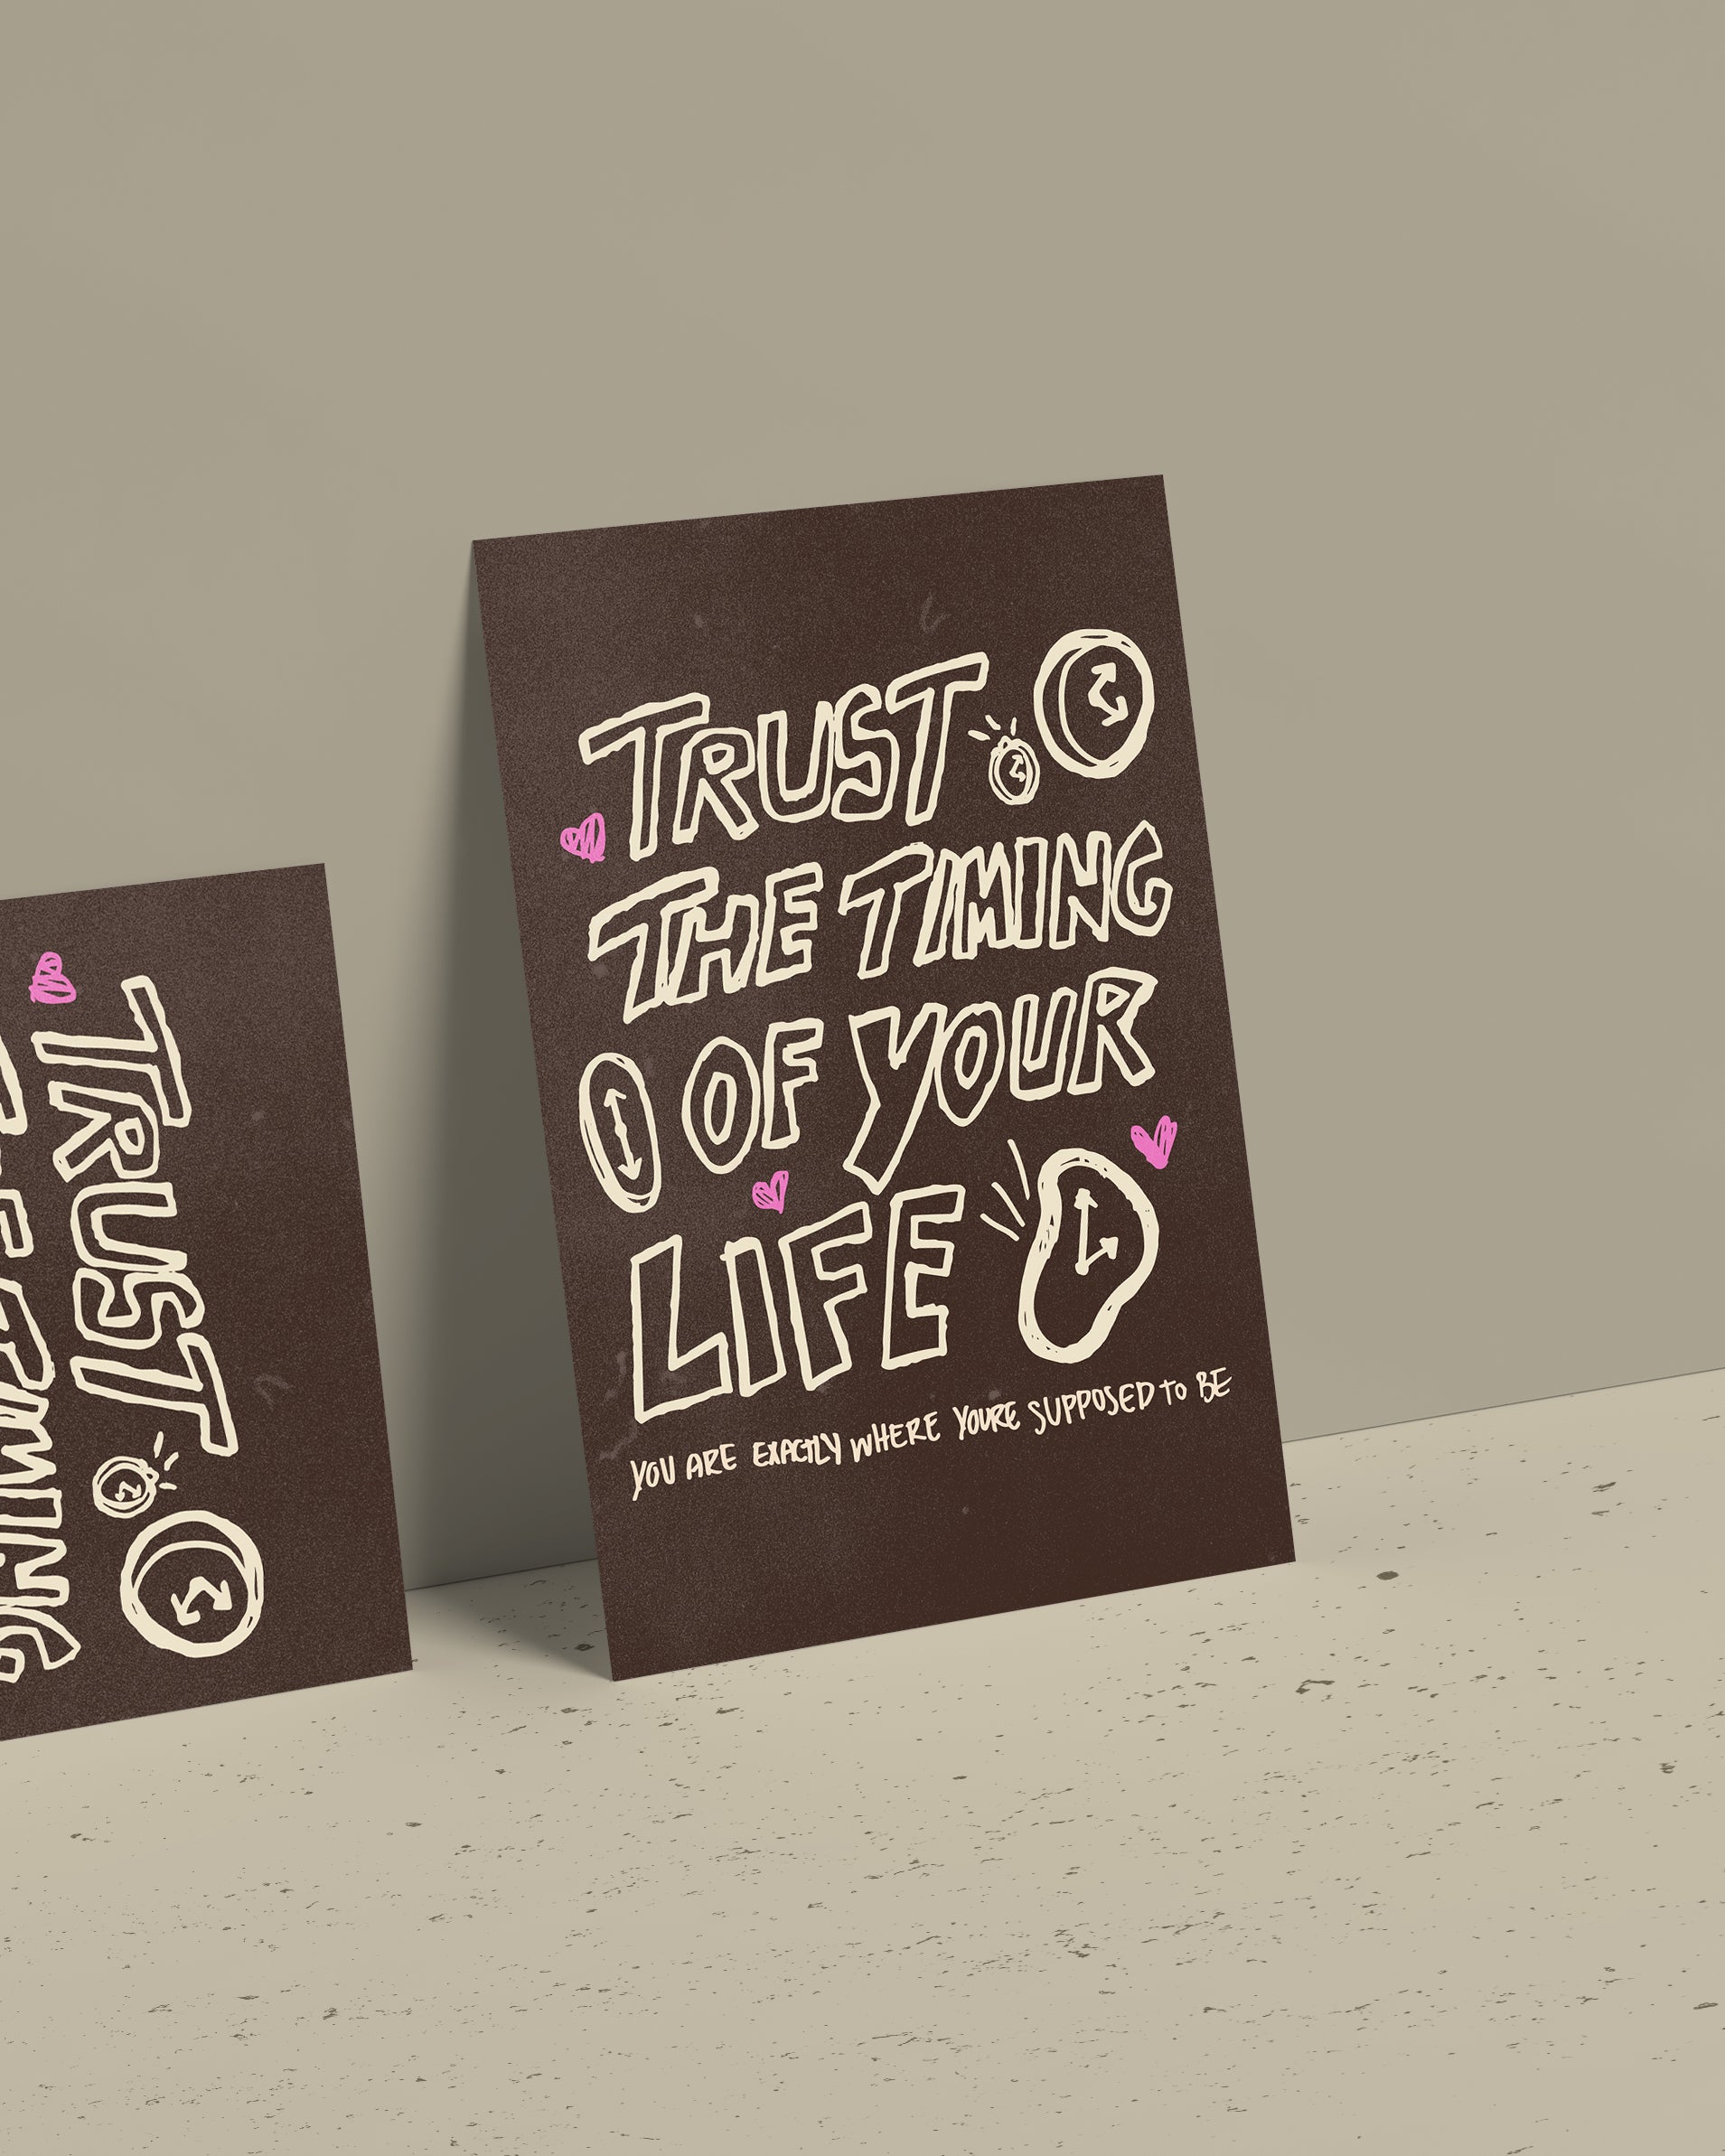 TRUST
THE TIMING
OF YOUR
LIFE
YOU ARE EXACTLY WHERE YOURE SUPPOSED to BE
TRUST
THE TIMING